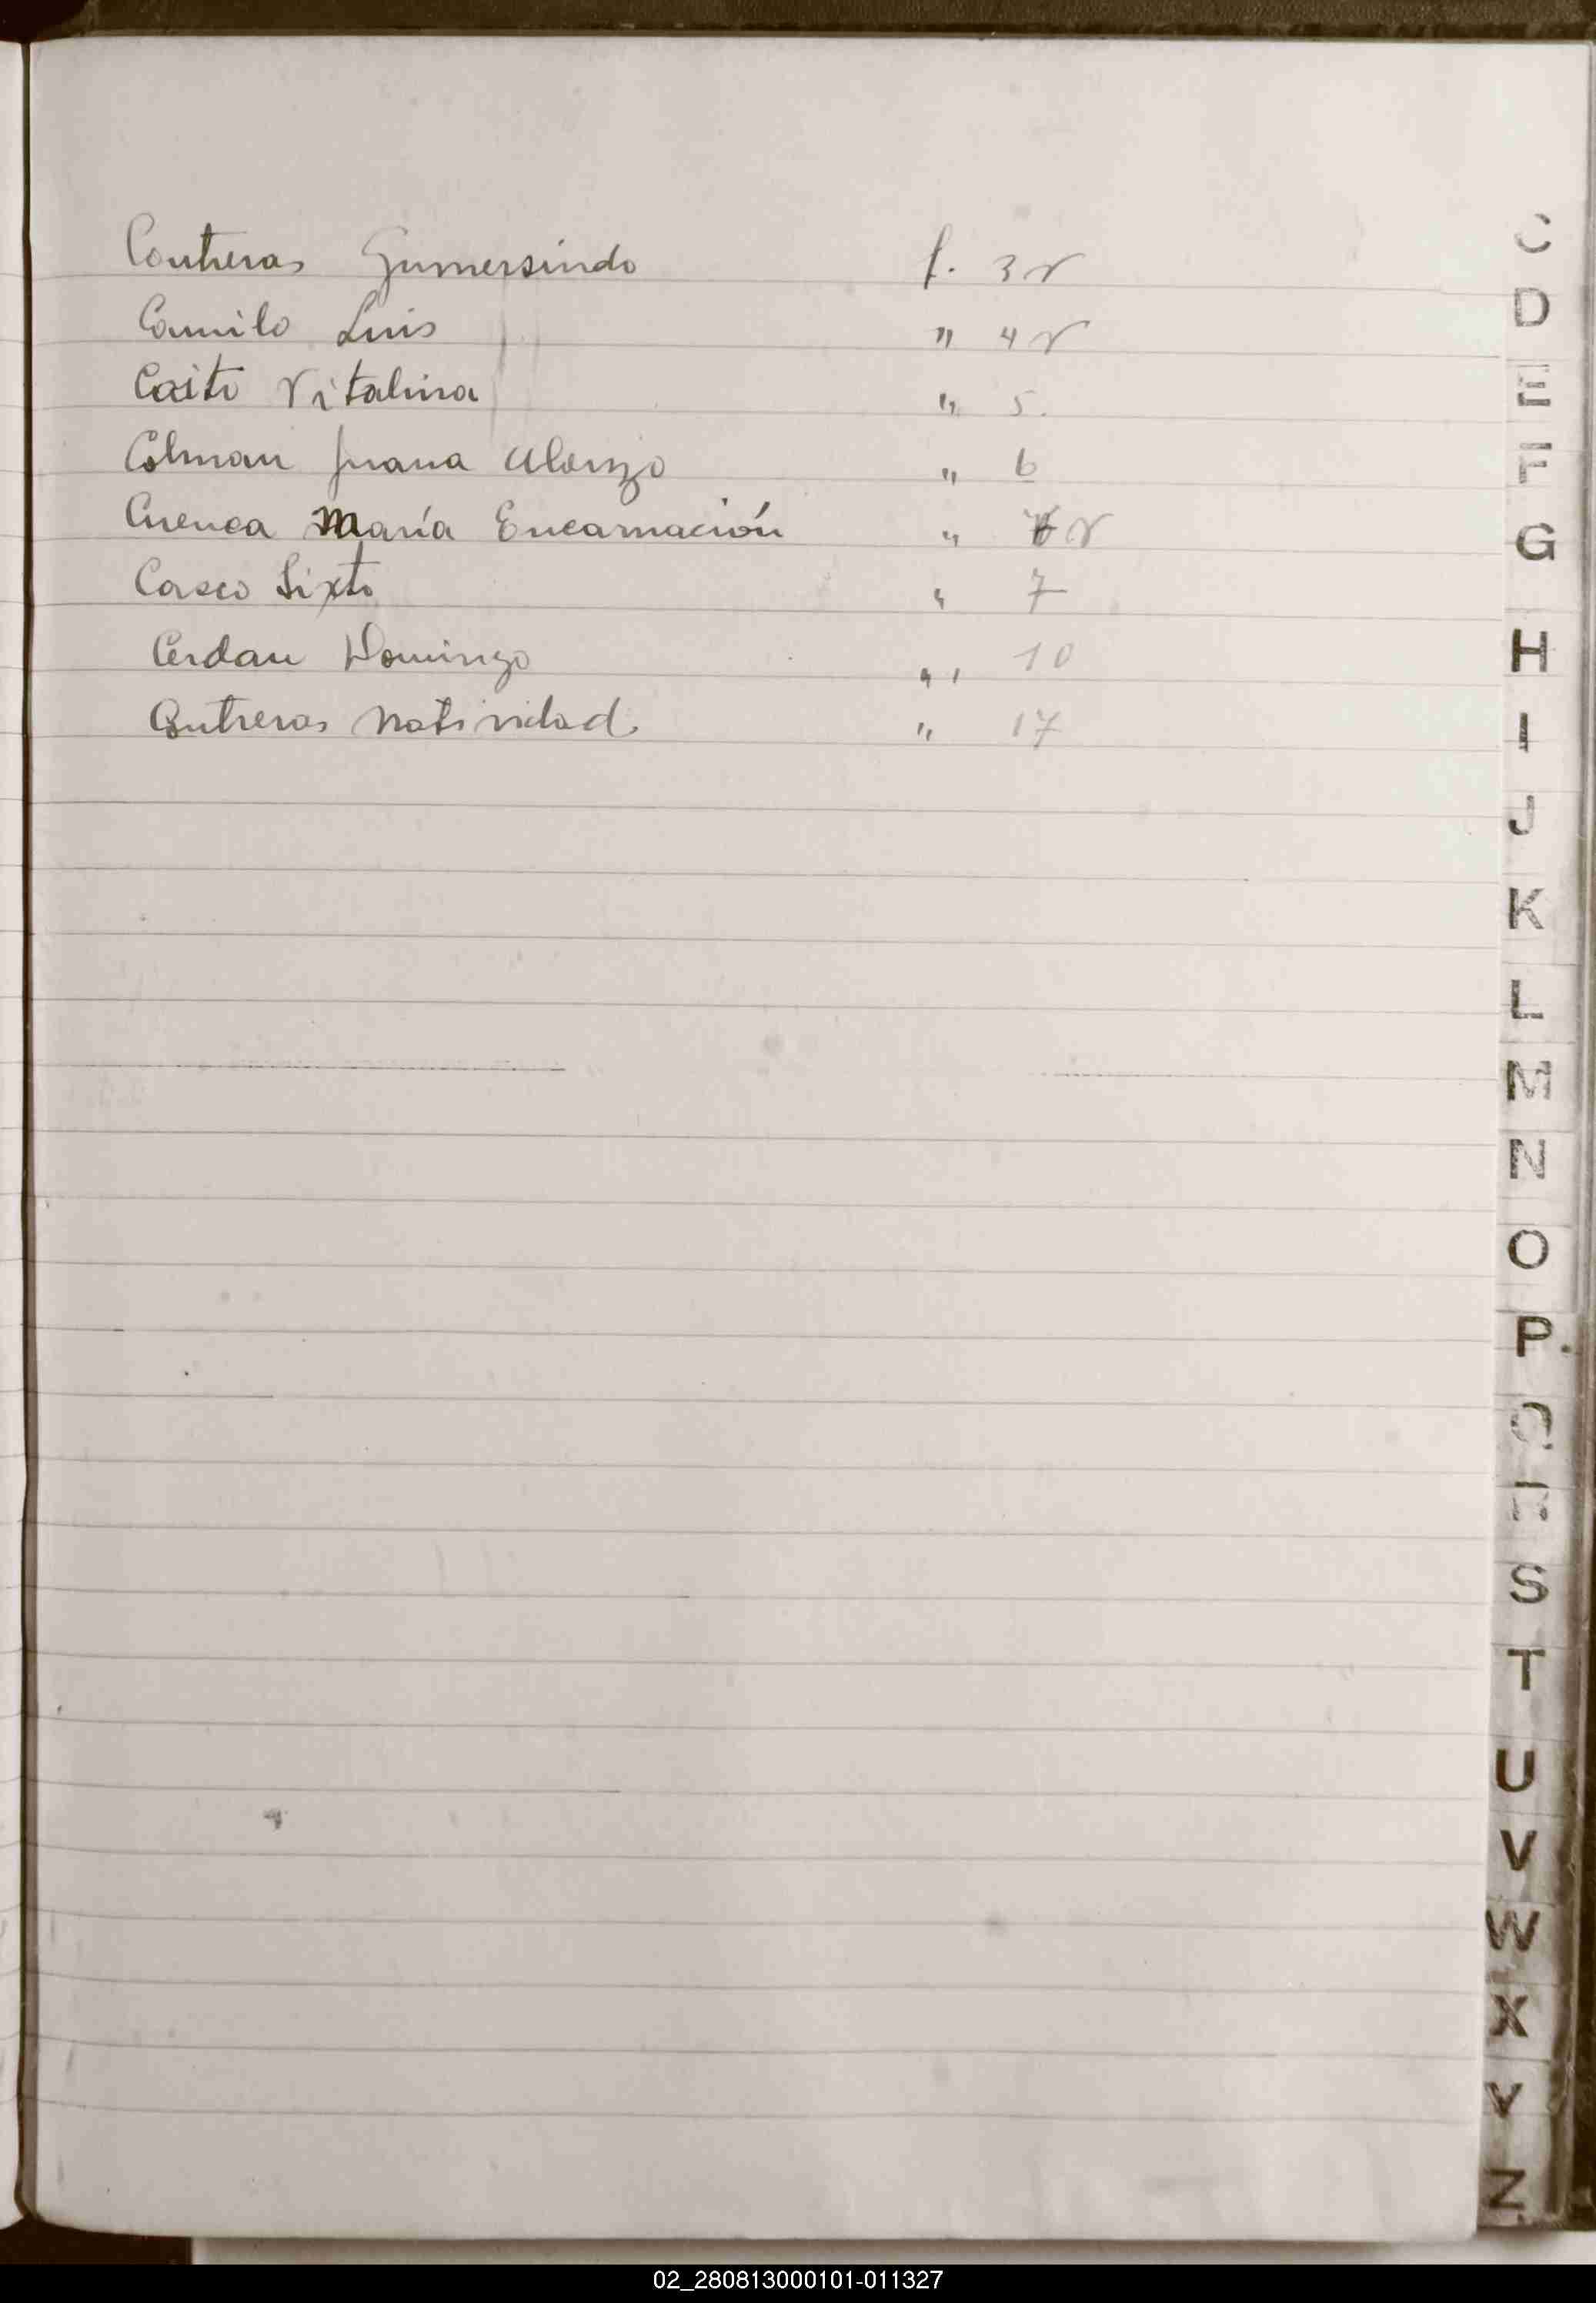 Contreras Gumersindo f. 3 v
Camilo Luis " 4 v
Caito Vitalina " 5.
Colman Juana Alonzo " 6
Cuenca María Encarnación " v
Casco Sixto " 7
Cerdan Domingo " 10
Contreras Natividad " 17
C
D
E
F
G
H
I
J
K
L
M
N
O
P
Q
R
S
T
U
V
W
X
Y
Z
02_280813000101-011327